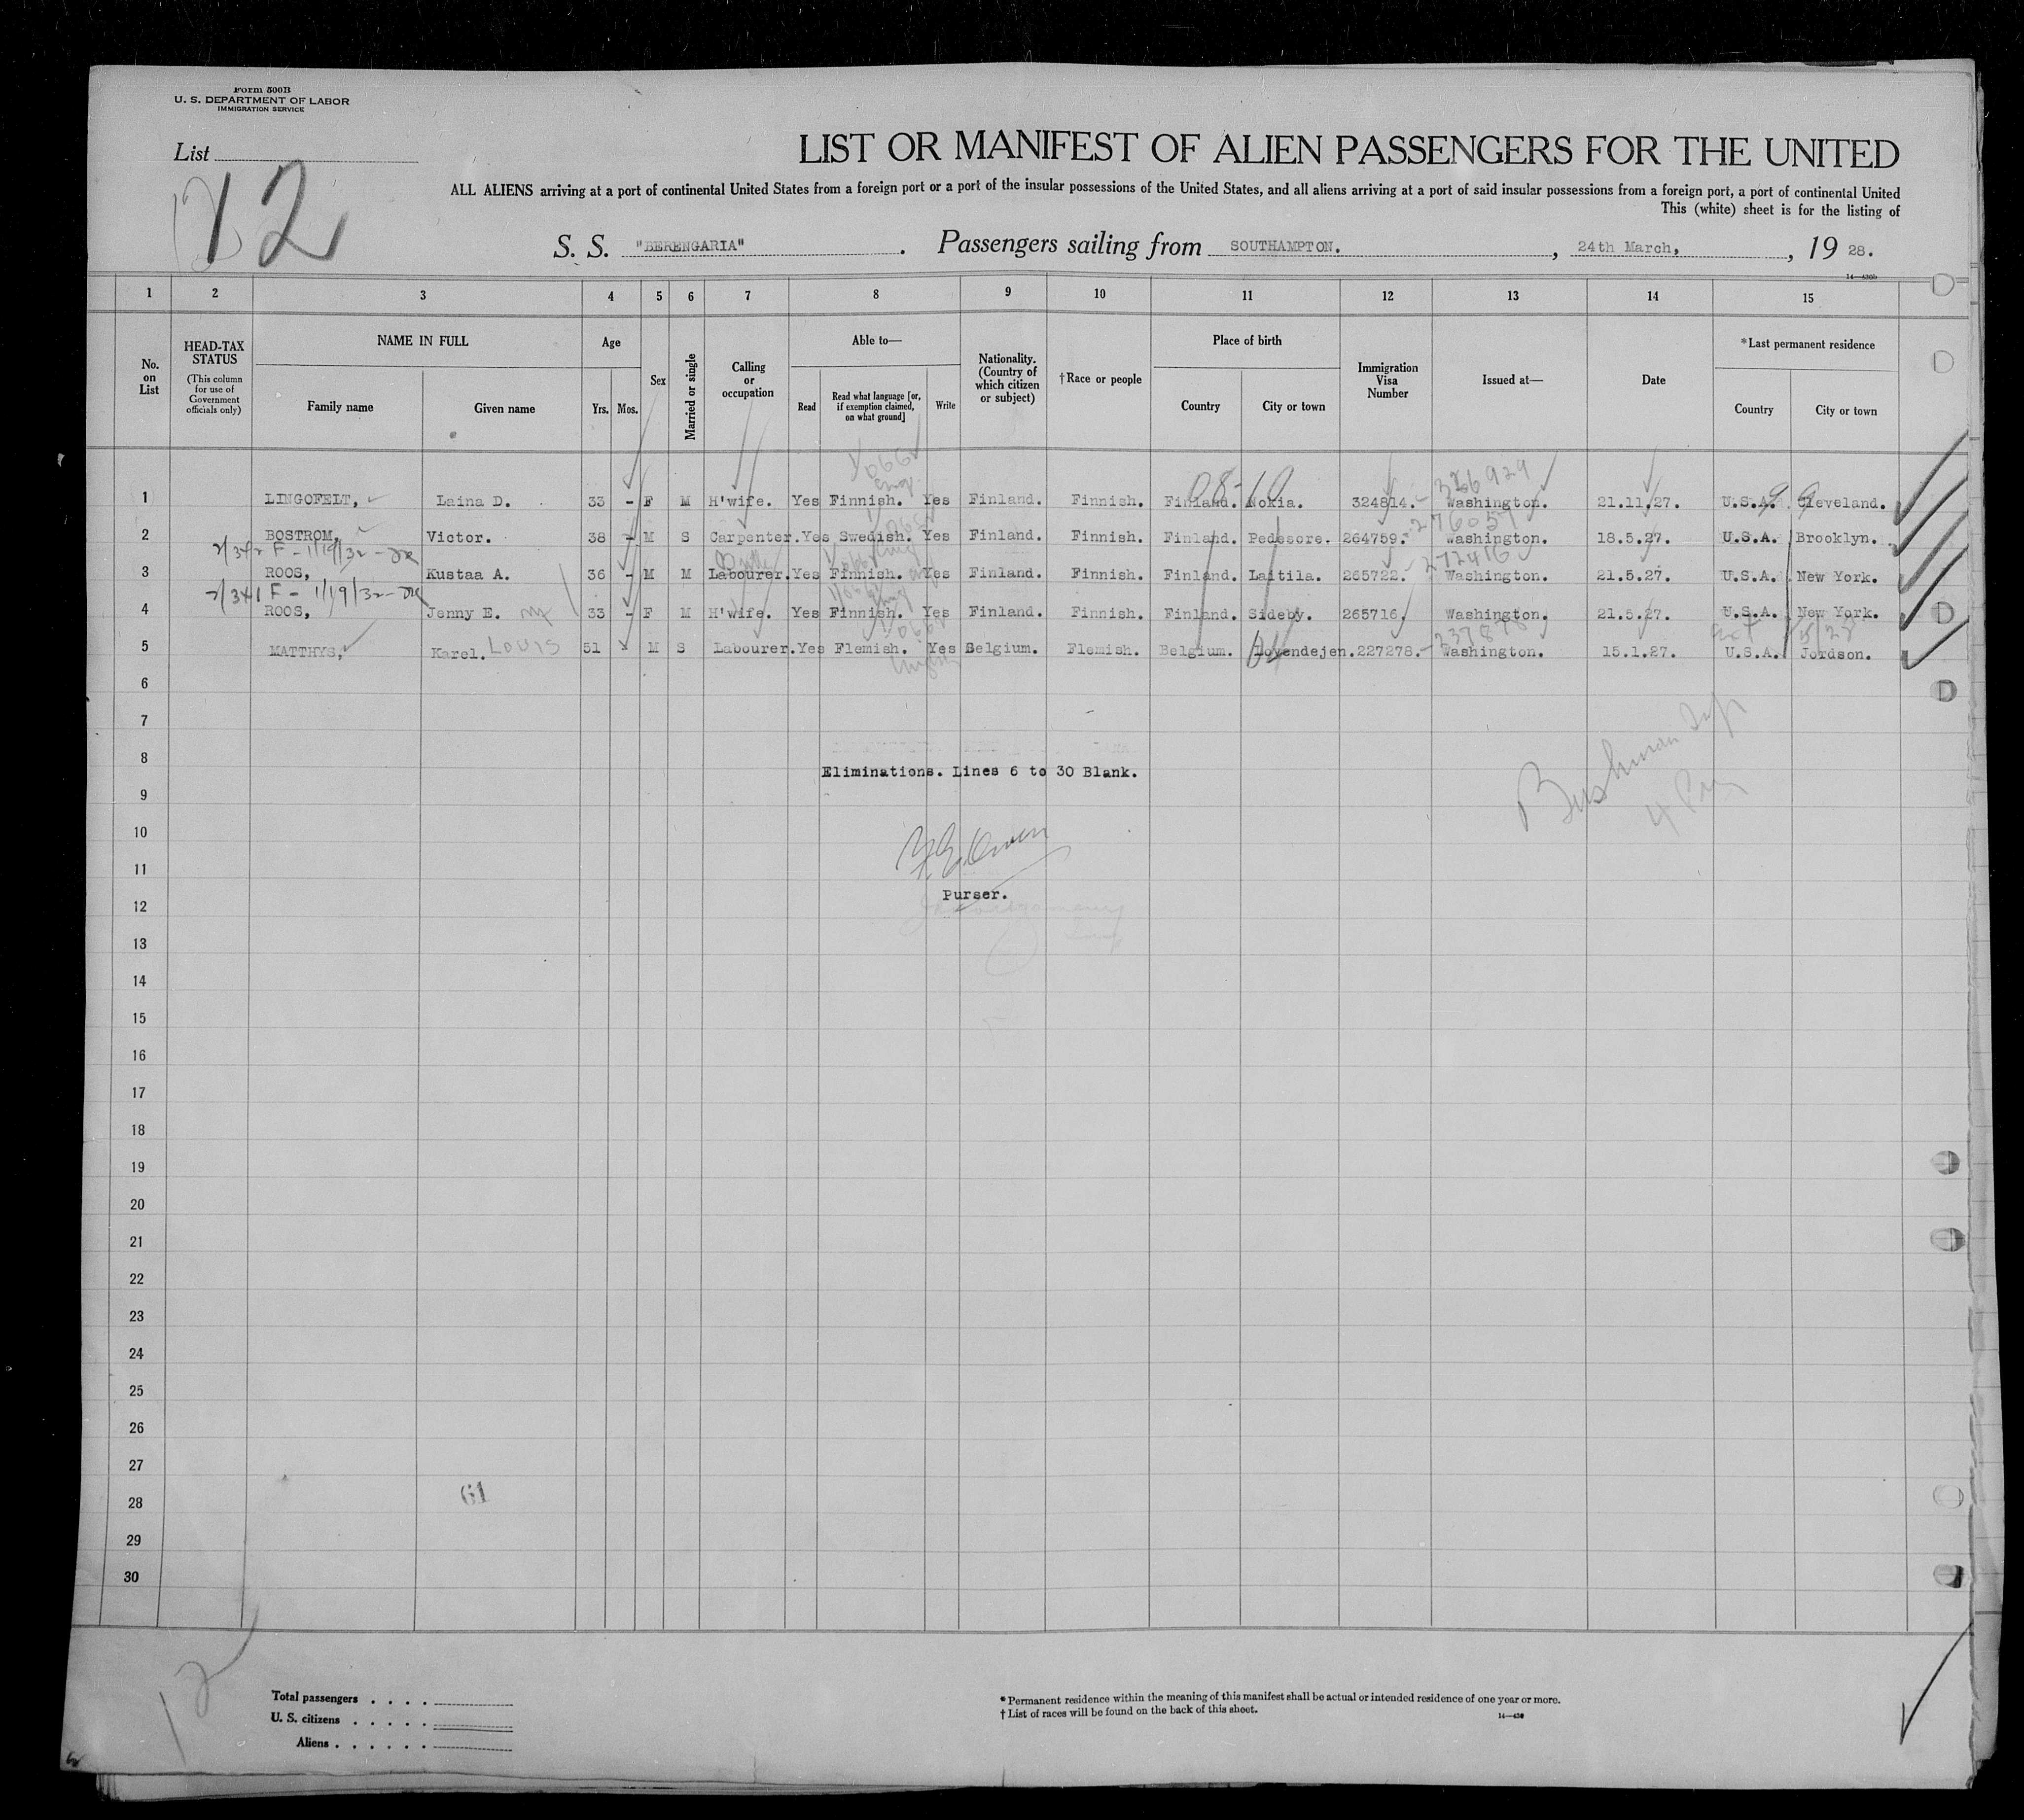 Form 500B
U. S. DEPARTMENT OF LABOR
IMMIGRATION SERVICE
List
12
LIST OR MANIFEST OF ALIEN PASSENGERS FOR THE UNITED
ALL ALIENS arriving at a port of continental United States from a foreign port or a port of the insular possessions of the United States, and all aliens arriving at a port of said insular possessions from a foreign port, a port of continental United
This (white) sheet is for the listing of
S. S. "BERENGARIA". Passengers sailing from SOUTHAMPTON., 24th March, , 19 28.
1 2 3 4 5 6 7 8 9 10 11 12 13 14 15
No. on List
HEAD-TAX STATUS (This column for use of Government officials only)
NAME IN FULL
Family name Given name
Age
Yrs. Mos.
Sex
Married or single
Calling or occupation
Able to—
Read
Read what language [or, if exemption claimed, on what ground]
Write
Nationality. (Country of which citizen or subject)
†Race or people
Place of birth
Country City or town
Immigration Visa Number
Issued at—
Date
*Last permanent residence
Country City or town
08-10 326929
1 LINGOFELT, Laina D. 33 - F M H'wife. Yes Finnish. Yes Finland. Finnish. Finland. Nokia. 324814. Washington. 21.11.27. U.S.A. Cleveland.
2 BOSTROM, Victor. 38 - M S Carpenter. Yes Swedish. Yes Finland. Finnish. Finland. Pedesore. 264759. Washington. 18.5.27. U.S.A. Brooklyn.
272416
3 ROOS, Kustaa A. 36 - M M Labourer. Yes Finnish. Yes Finland. Finnish. Finland. Laitila. 265722. Washington. 21.5.27. U.S.A. New York.
4 ROOS, Jenny E. 33 - F M H'wife. Yes Finnish. Yes Finland. Finnish. Finland. Sideby. 265716. Washington. 21.5.27. U.S.A. New York.
5 MATTHYS, Karel. Louis 51 M S Labourer. Yes Flemish. Yes Belgium. Flemish. Belgium. Lovendejen. 227278. Washington. 15.1.27. U.S.A. Jordson.
6
7
8
Eliminations. Lines 6 to 30 Blank.
9
10
11
Purser.
12
13
14
15
16
17
18
19
20
21
22
23
24
25
26
27
61
28
29
30
12
Total passengers
U. S. citizens
Aliens
* Permanent residence within the meaning of this manifest shall be actual or intended residence of one year or more.
† List of races will be found on the back of this sheet.
14—430